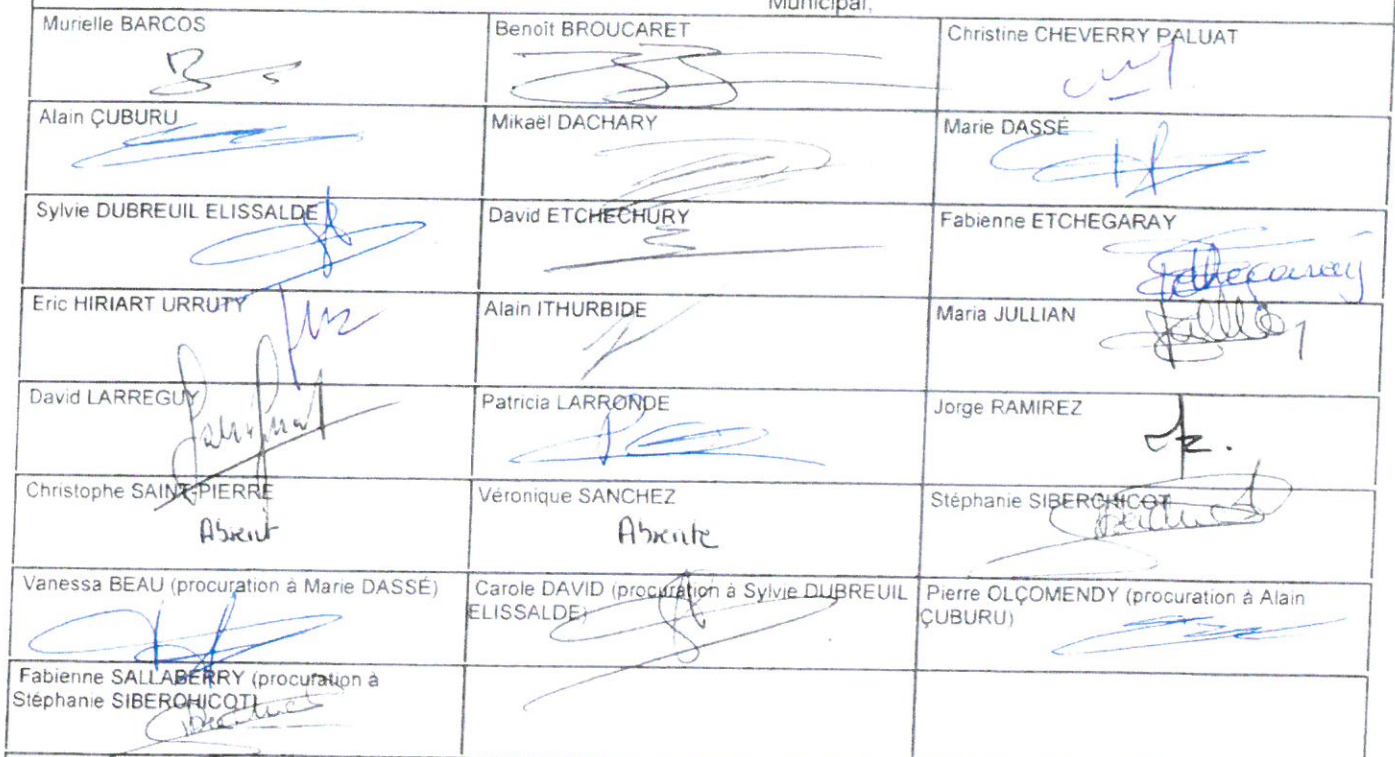 Municipal,
Murielle BARCOS
Benoît BROUCARET
Christine CHEVERRY PALUAT
Alain ÇUBURU
Mikaël DACHARY
Marie DASSÉ
Sylvie DUBREUIL ELISSALDE
David ETCHECHURY
Fabienne ETCHEGARAY
Etchegaray
Eric HIRIART URRUTY
Alain ITHURBIDE
Maria JULLIAN
David LARREGUY
Patricia LARRONDE
Jorge RAMIREZ
Christophe SAINT-PIERRE
Absent
Véronique SANCHEZ
Absente
Stéphanie SIBERCHICOT
Vanessa BEAU (procuration à Marie DASSÉ)
Carole DAVID (procuration à Sylvie DUBREUIL
ELISSALDE)
Pierre OLÇOMENDY (procuration à Alain
ÇUBURU)
Fabienne SALLABERRY (procuration à
Stéphanie SIBERCHICOT)